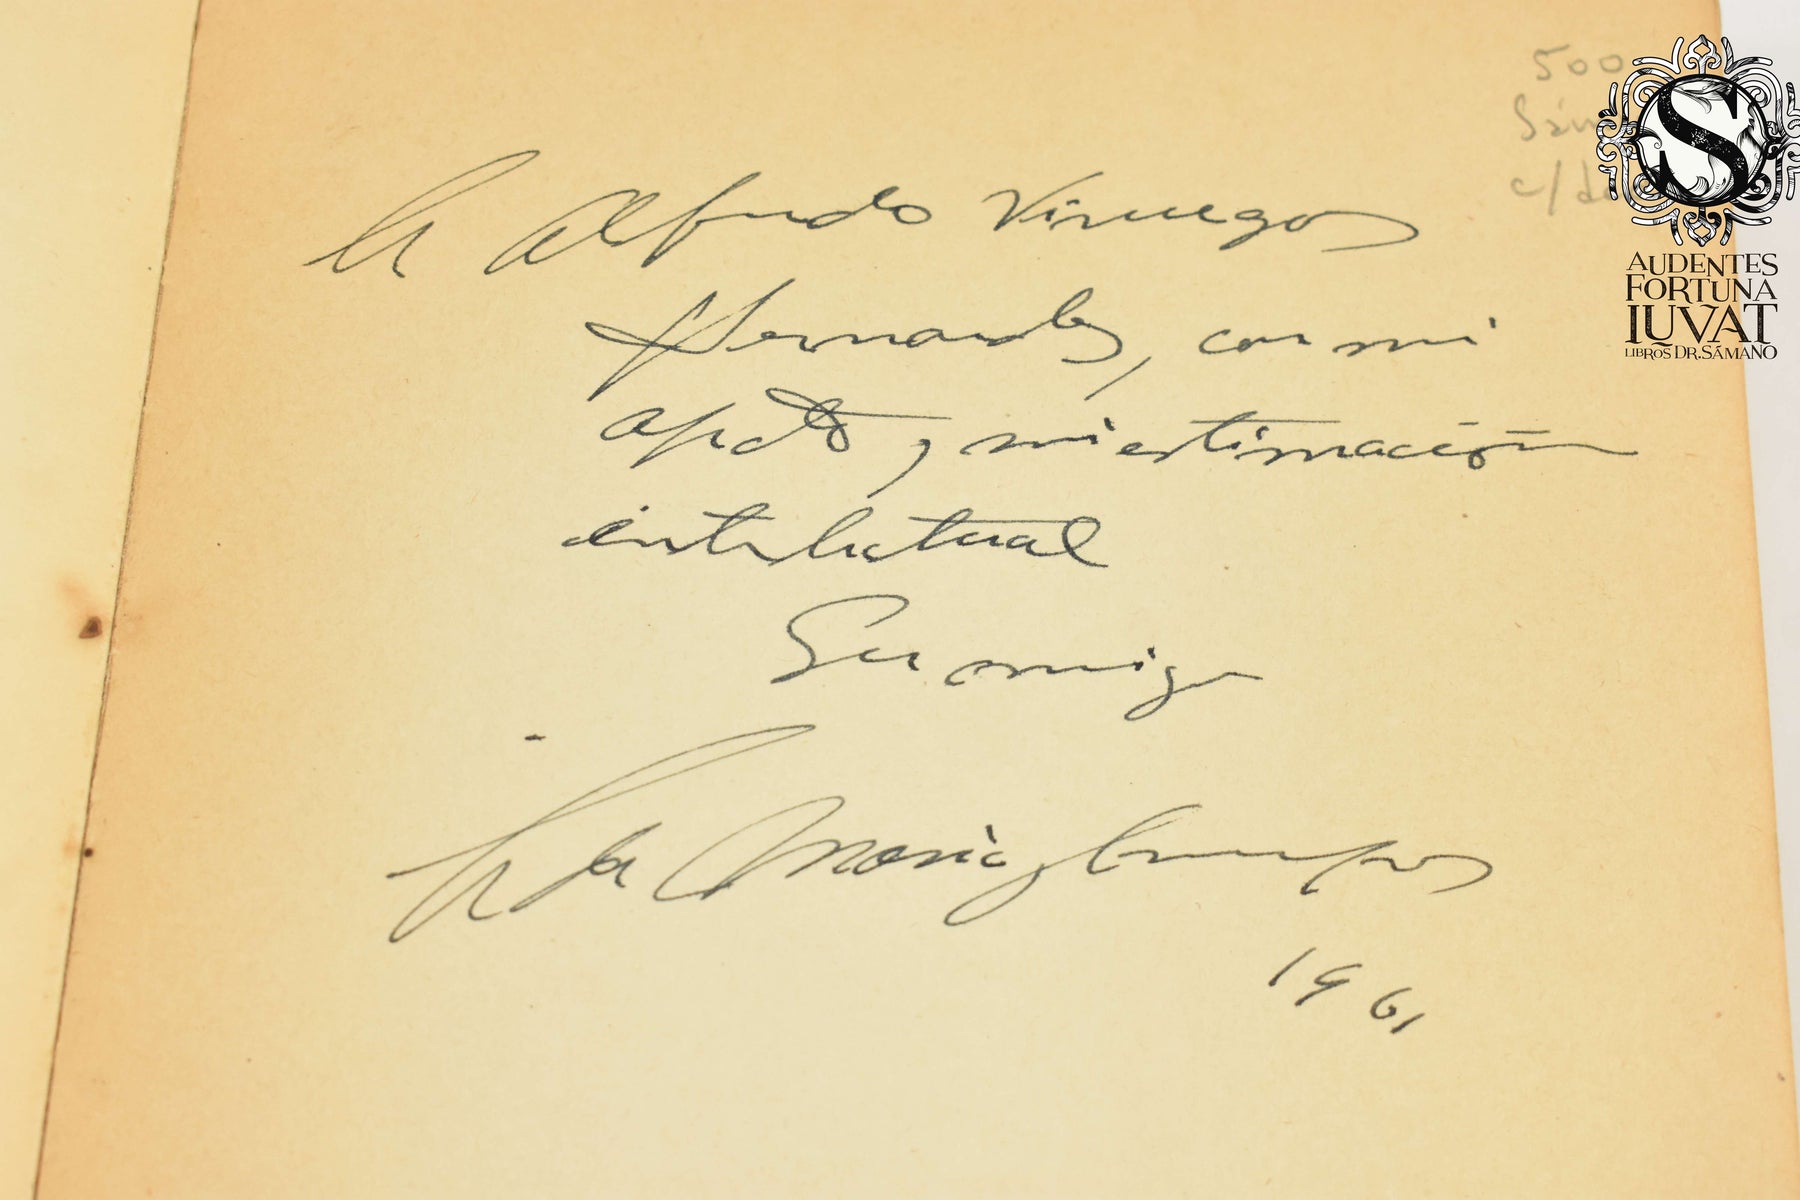 A Alfredo Viruegos
Hernández, con mi
afecto y mi estimación
intelectual
Su amiga
María
1961
500
AUDENTES
FORTUNA
IUVAT
LIBROS DR. SÁMANO
S